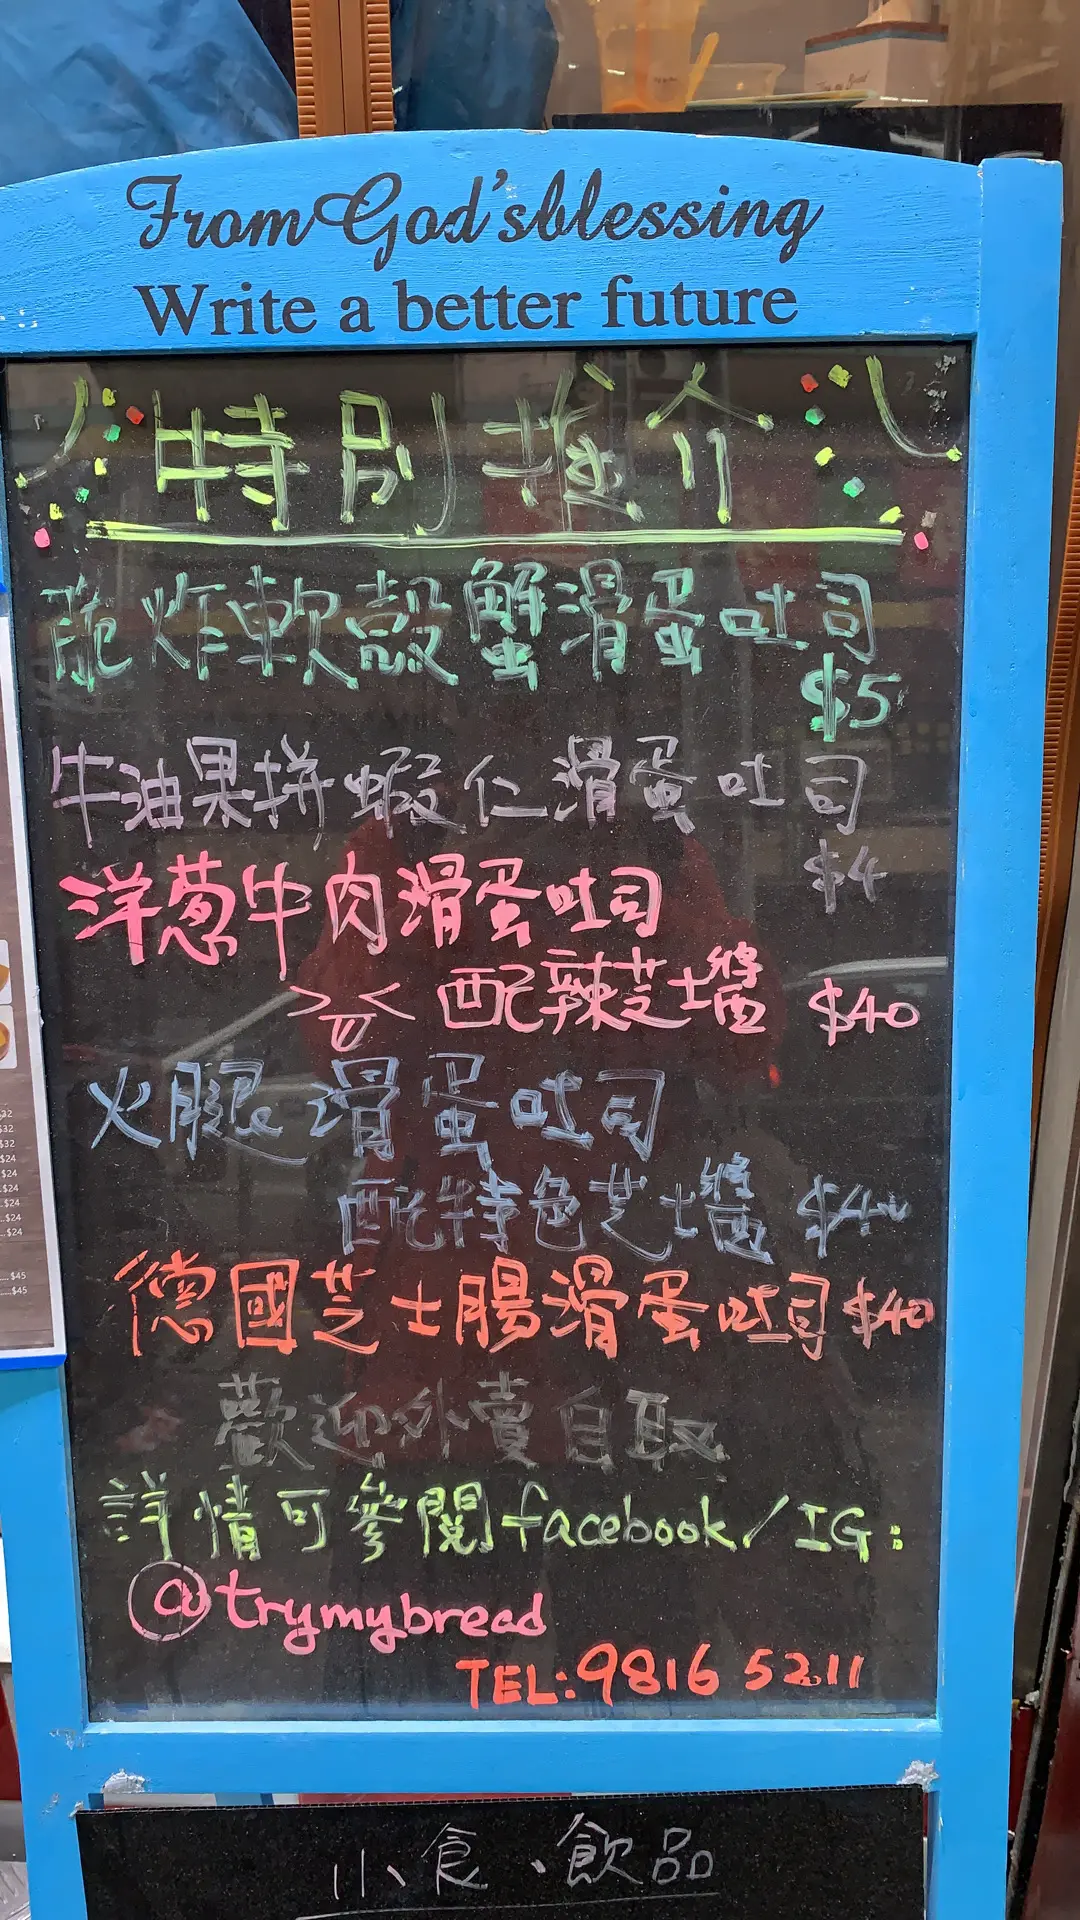 From God'sblessing
Write a better future
特別推介
脆炸軟殼蟹滑蛋吐司
$5
牛油果拼蝦仁滑蛋吐司
$4
洋葱牛肉滑蛋吐司
配辣芝士醬 $40
火腿滑蛋吐司
配特色芝士醬 $40
德國芝士腸滑蛋吐司 $40
歡迎外賣自取
詳情可參閱facebook/IG:
@trymybread
TEL:9816 5211
小食、飲品
$32
$32
$32
$24
$24
$24
$24
$24
$24
$45
$45